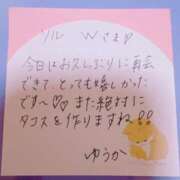 ソル Wさま
今日はお久しぶりに再会
できて、とっても嬉しかった
です〜♡♡ また絶対に
タコスを作りますね!!
ゆうか